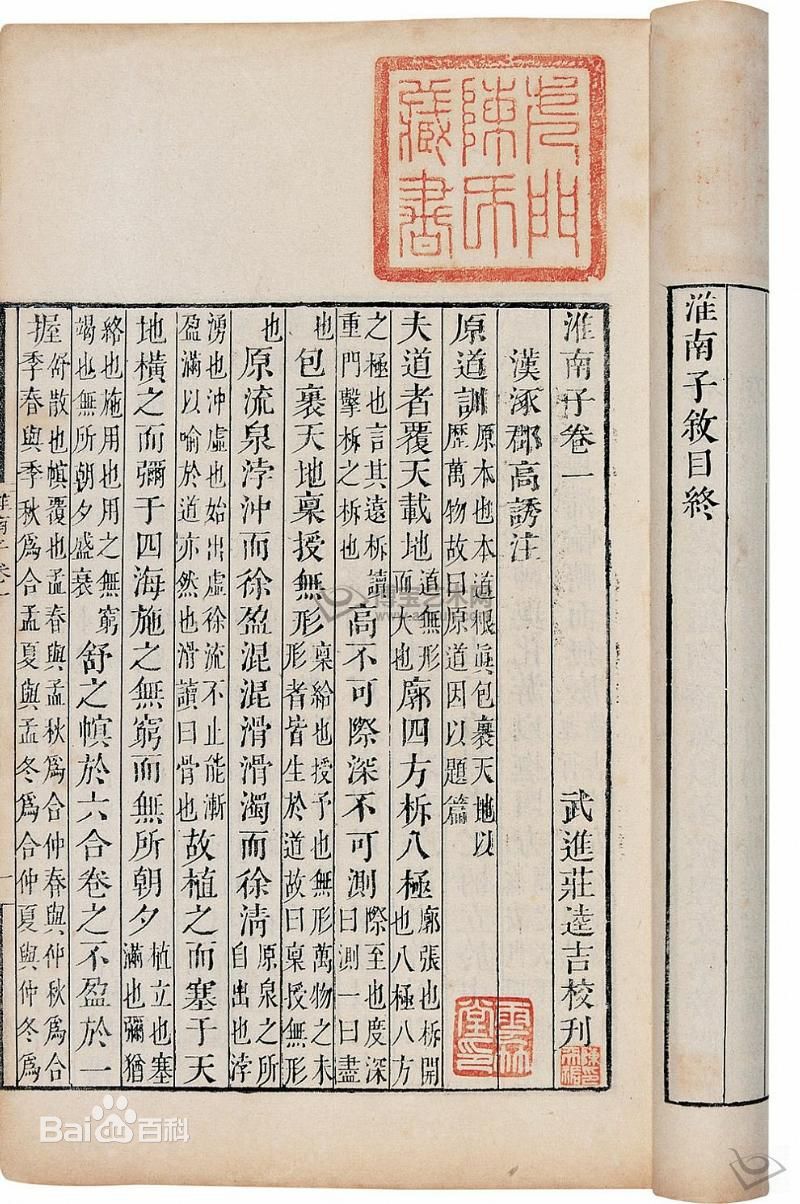 淮南子敘目終
門陳氏藏書
淮南子卷一 武進莊逵吉校刊
漢涿郡高誘注
原道訓 原本也本道根真包裹天地以歷萬物故曰原道因以題篇
夫道者覆天載地 道無形而大也 廓四方柝八極 廓張也柝開也八極八方
之極也言其遠柝讀重門擊柝之柝也 高不可際深不可測 際至也度深曰測一曰盡
也 包裹天地稟授無形 稟給也授予也無形萬物之未形者皆生於道故曰稟授無形
也 原流泉浡沖而徐盈混混滑滑濁而徐清 原泉之所自出也浡
湧也沖虛也始出虛徐流不止能漸盈滿以喻於道亦然也滑讀曰骨也 故植之而塞于天
地橫之而彌于四海施之無窮而無所朝夕 植立也塞滿也彌猶
絡也施用也用之無窮竭也無所朝夕盛衰 舒之幎於六合卷之不盈於一
握 舒散也幎覆也孟春與孟秋爲合仲春與仲秋爲合季春與季秋爲合孟夏與孟冬爲合仲夏與仲冬爲
淮南子卷一
一
博宝艺术网
Bai百科